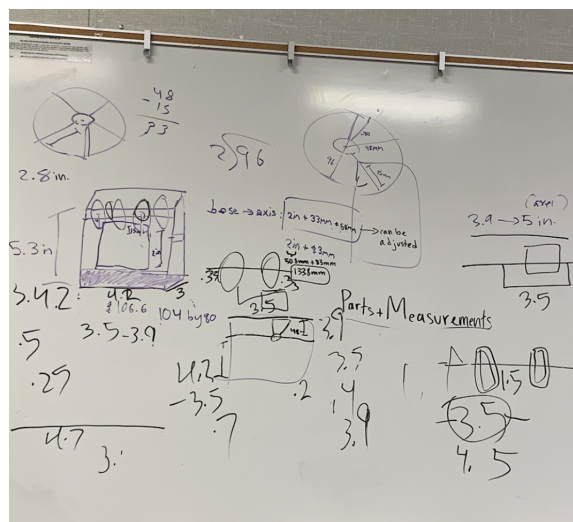 48
- 15
33
2.8 in.
2)96
96
48mm
base → axis: 2in + 33mm + 50mm → can be adjusted
2in + 83mm
50.8mm + 83mm
133.8mm
(axel)
3.9 → 5 in.
3.5
5.3 in
2in
4.2
3
106.6
104 by 80
3.4.2:
3.5 - 3.9
.5
.25
4.7
3.
.35
3.5
4.2
- 3.5
.7
.2
Parts + Measurements
3.9
3.5
.4
3.9
1.5
3.5
4.5